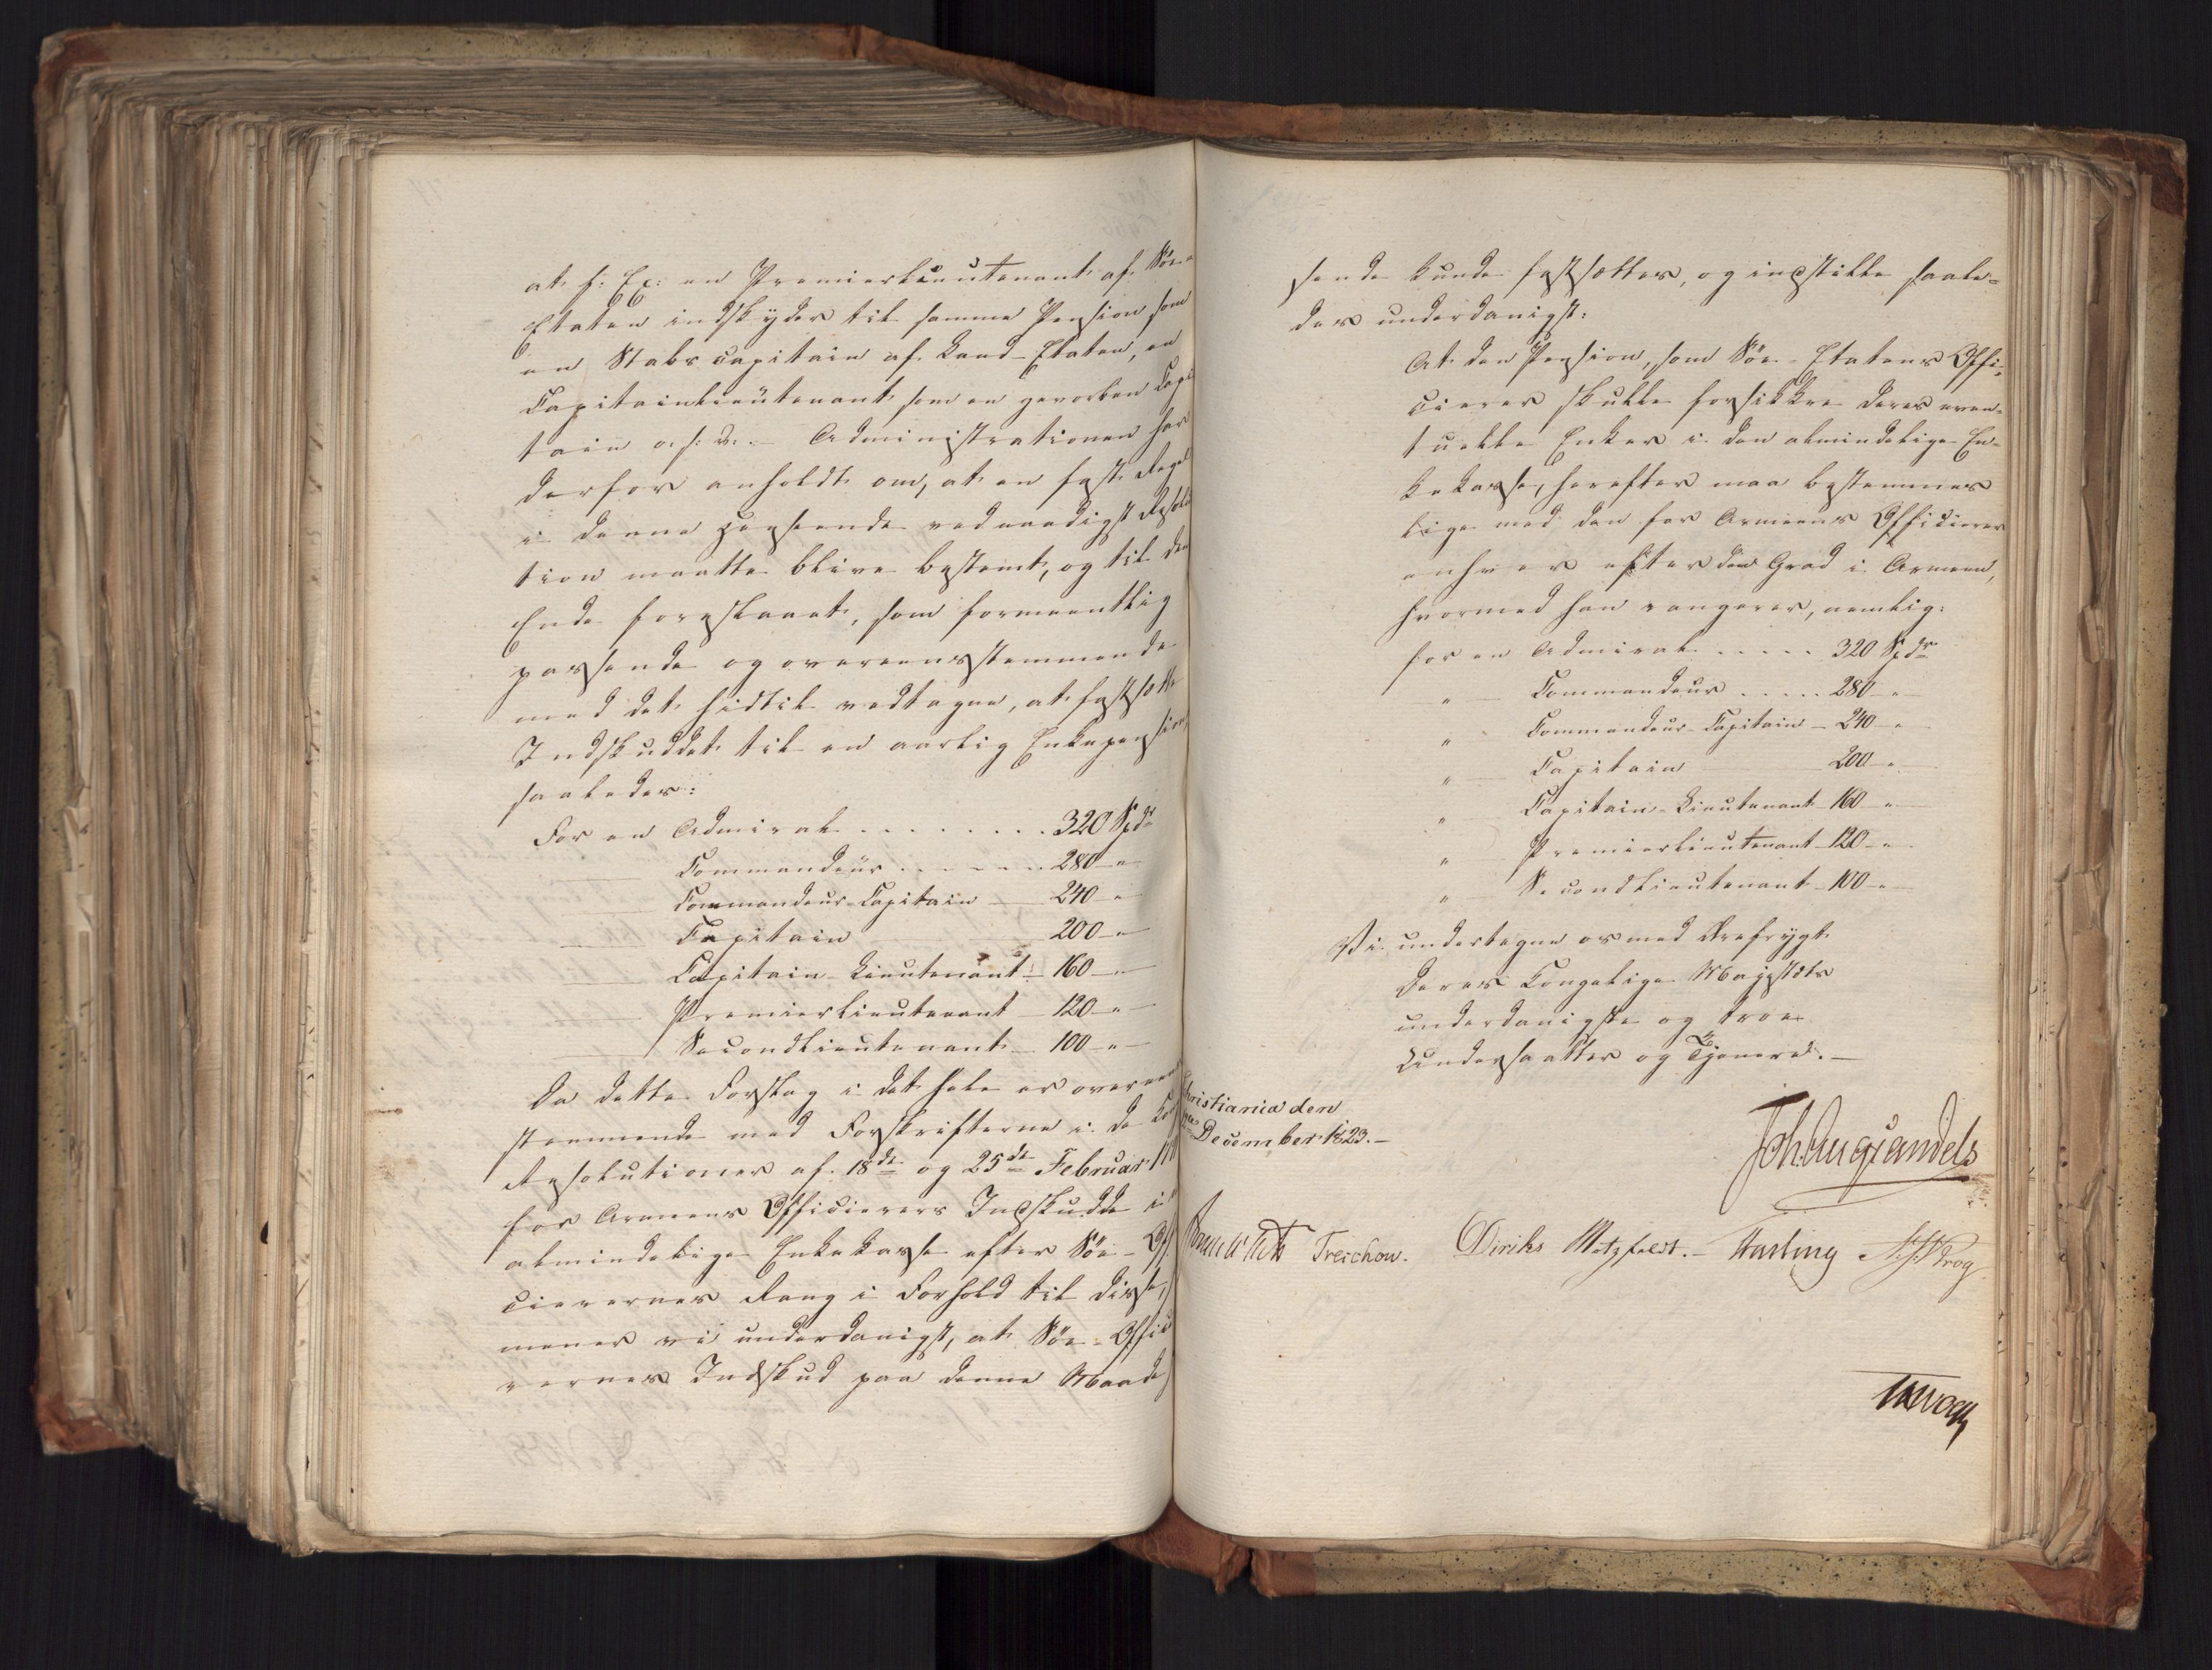 at f: Ex: en Premierlieutenant af Søe-
Etaten indskyder til samme Pension som
en Stabscapitain af Land-Etaten, en
Capitainlieutenant som en gevorben Capi
tain o. s. v. Administrationen har
derfor anholdt om, at en fast Regel
i denne Henseende ved naadigst Resolu
tion maatte blive bestemt, og til den
Ende foreslaaet, som formeentlig
passende og overeensstemmende
med det hidtil vedtagne, at fastsætte
Indskuddet til en aarlig Enkepension
saaledes:
For en Admiral . . . . . . . . 320 Spd.
Commandeur . . . . . . 280 "
Commandeur-Capitain 240 "
Capitain 200 "
Capitain-Lieutenant 160 "
Premierlieutenant 120 "
Secondlieutenant 100 "
Da dette Forslag i det hele er overeens
stemmende med Forskrifterne i de Kgl
Resolutioner af 18de og 25de Februar
for Armeens Officierers Indskudde i
almindelige Enkekasse efter Søe-Offi
cierernes Rang i Forhold til disse,
mener vi underdanigst, at Søe-Offici
erernes Indskud paa denne Maade
sende kunde fastsættes, og indstille saale-
des underdanigst:
At den Pension, som Søe-Etatens Offi-
cierer skulle forsikkre deres even-
tuelle Enker i den almindelige En-
kekasse, herefter maa bestemmes
lige med den for Armeens Officierer
enhver efter den Grad i Armeen,
hvormed han rangerer, nemlig:
for en Admiral . . . . . 320 Spdr
" Commandeur . . . . . 280 "
" Commandeur-Capitain - 240 "
" Capitain 200 "
" Capitain-Lieutenant 160 "
" Premierlieutenant 120 "
" Secondlieutenant 100 "
Vi undertegne os med Ærefrygt
Deres Kongelige Majestæts
underdanigste og troe
Undersaatter og Tjenere.
Christiania den
December 1823.
Joh. Aug Sandels
Sommerhielm Treschow. Diriks Motzfeldt. Fasting Krog
Vogt